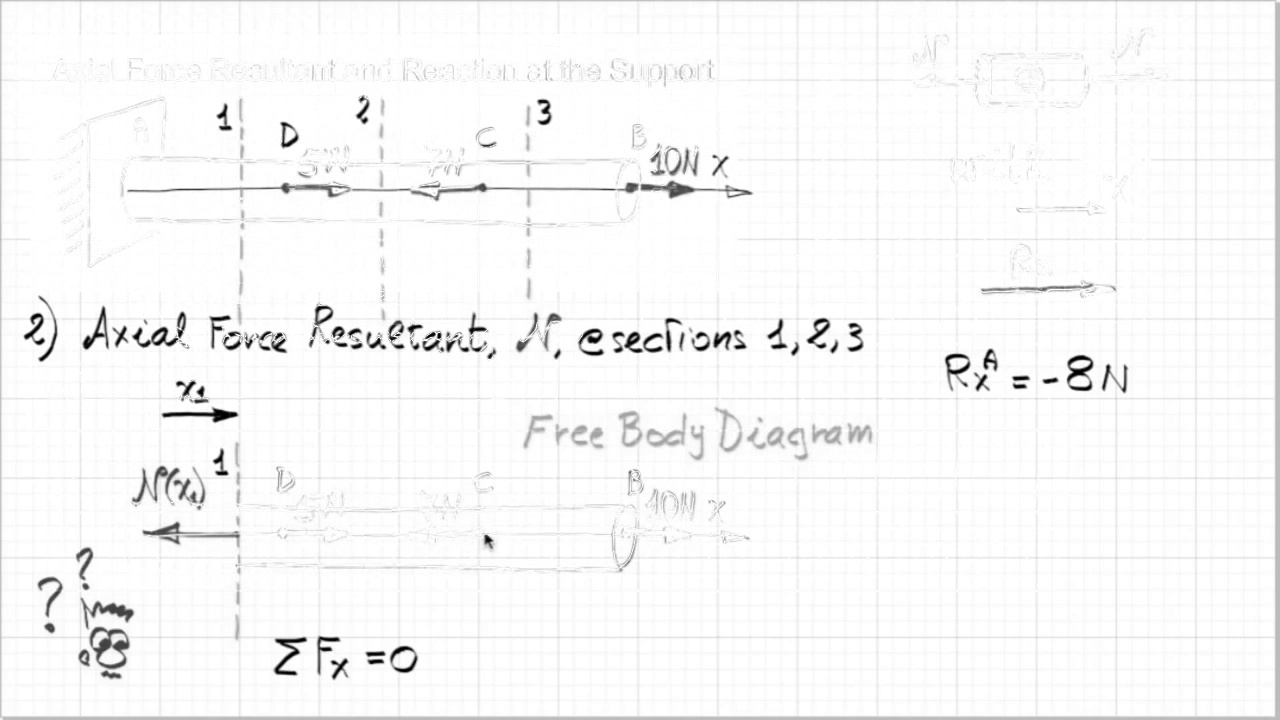 Axial Force Resultant and Reaction at the Support
N N
1 2 3
A D 5N 7N C B 10N x
x
Rx
2) Axial Force Resultant, N, @sections 1,2,3
RxA = -8N
x1
Free Body Diagram
N(x1) 1 D 5N 7N C B 10N x
? ?
ΣFx = 0